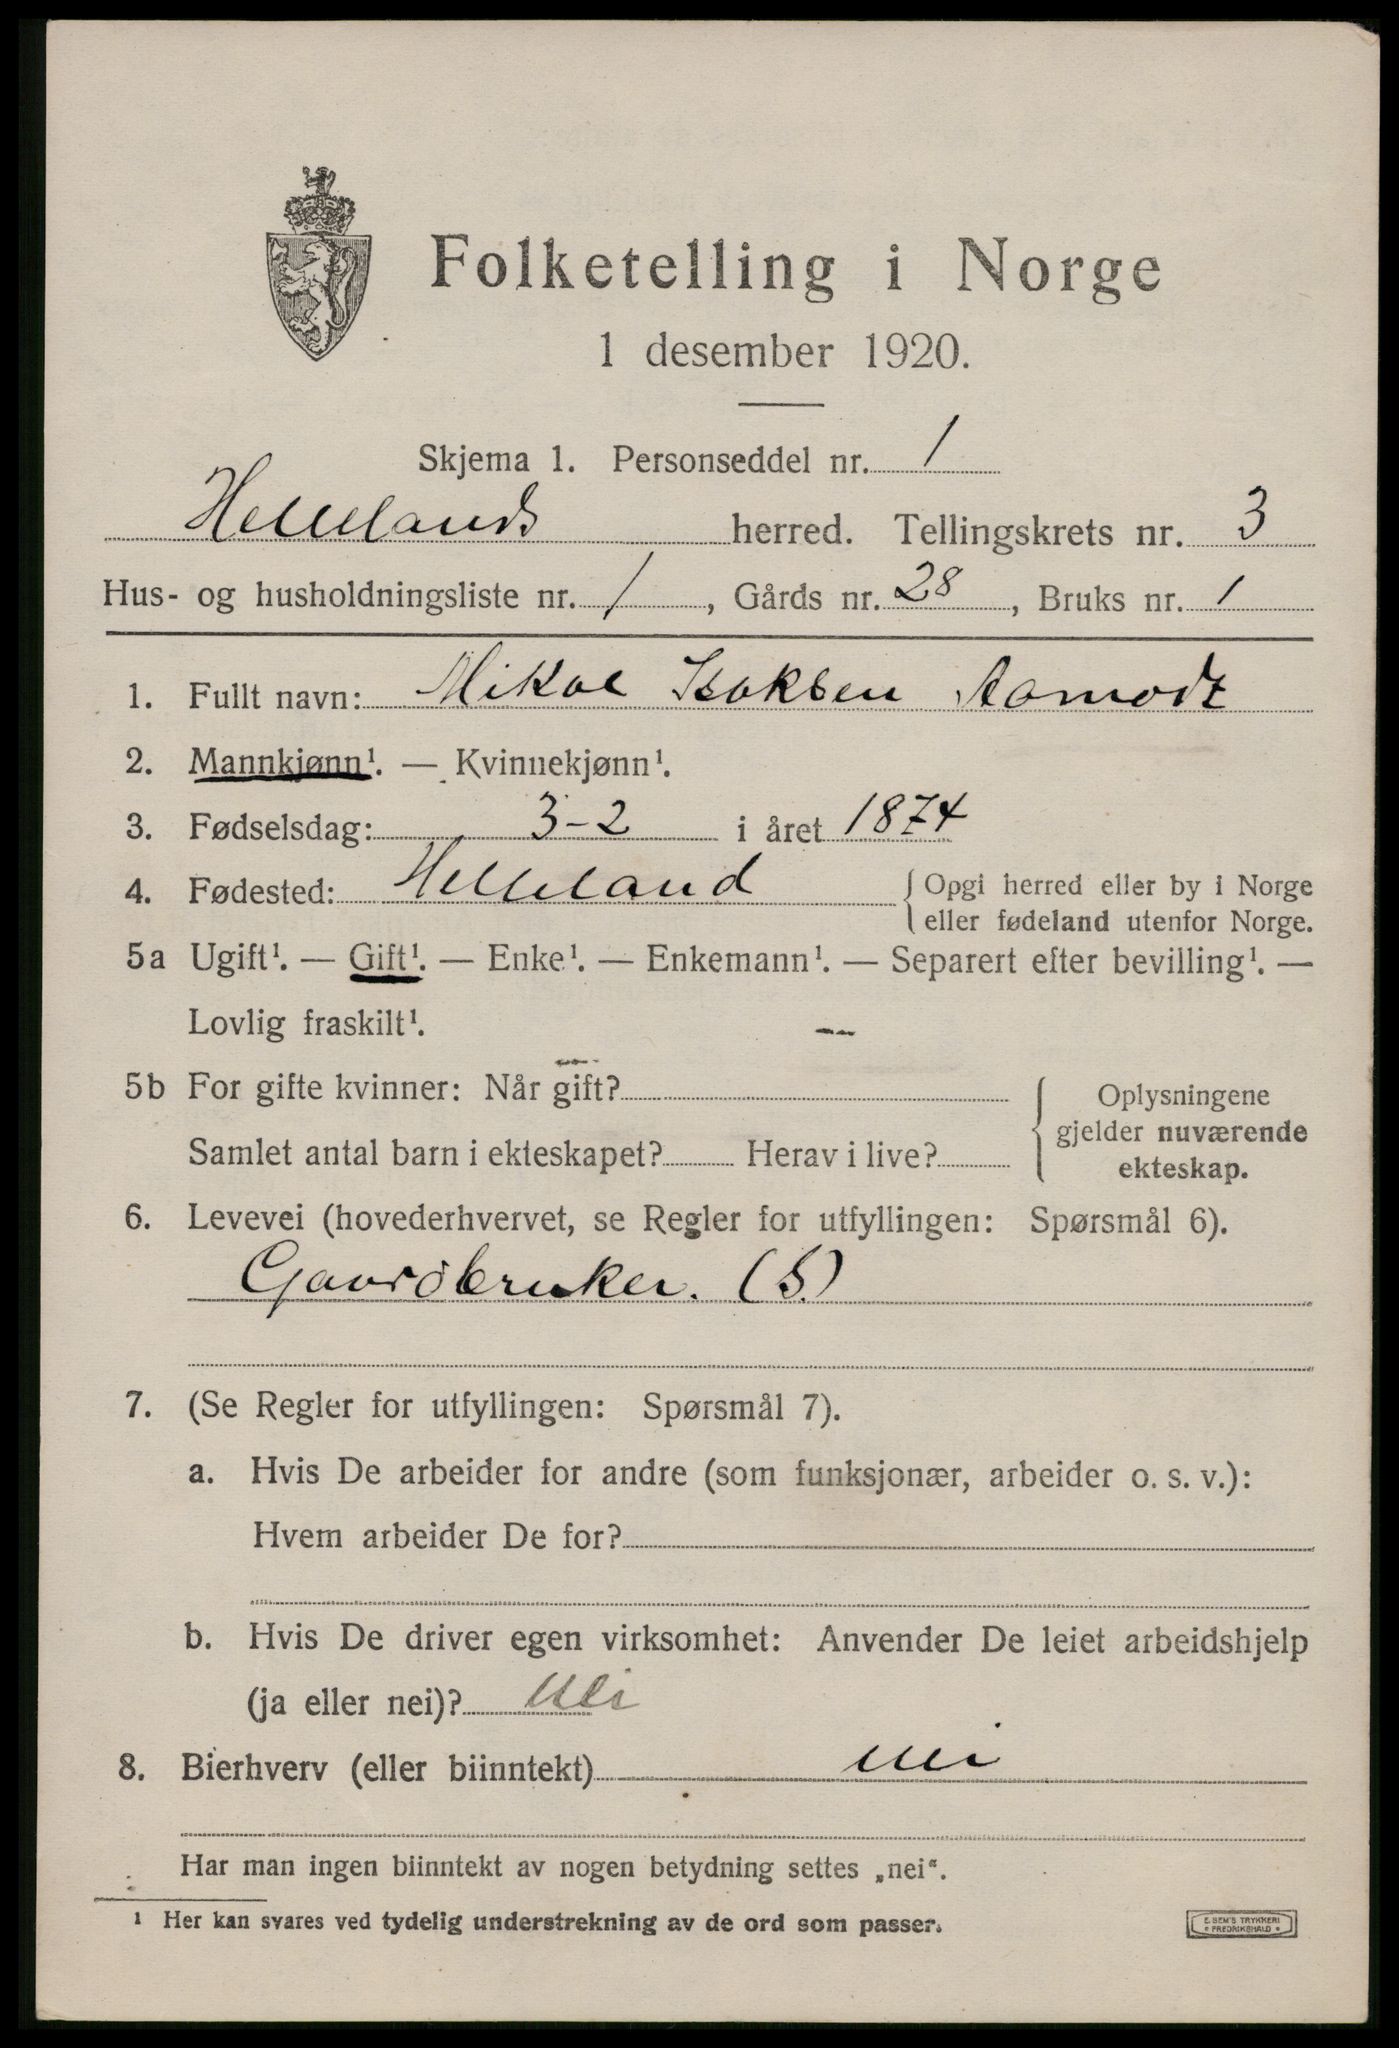 Folketelling i Norge
1 desember 1920.
Skjema 1. Personseddel nr. 1
Hellelands herred. Tellingskrets nr. 3
Hus- og husholdningsliste nr. 1, Gårds nr. 28, Bruks nr. 1
1. Fullt navn: Mikal Isaksen Aamodt
2. Mannkjønn¹. — Kvinnekjønn¹.
3. Fødselsdag: 3-2 i året 1874
4. Fødested: Helleland { Opgi herred eller by i Norge
eller fødeland utenfor Norge.
5a Ugift¹. — Gift¹. — Enke¹. — Enkemann¹. — Separert efter bevilling¹. —
Lovlig fraskilt¹. —
5b For gifte kvinner: Når gift? { Oplysningene
gjelder nuværende
Samlet antal barn i ekteskapet? Herav i live?
ekteskap.
6. Levevei (hovederhvervet, se Regler for utfyllingen: Spørsmål 6).
Gaardbruker. (S.)
7. (Se Regler for utfyllingen: Spørsmål 7).
a. Hvis De arbeider for andre (som funksjonær, arbeider o. s. v.):
Hvem arbeider De for?
b. Hvis De driver egen virksomhet: Anvender De leiet arbeidshjelp
(ja eller nei)? Nei
8. Bierhverv (eller biinntekt) nei
Har man ingen biinntekt av nogen betydning settes „nei“.
¹ Her kan svares ved tydelig understrekning av de ord som passer.
E. SEM'S TRYKKERI
* FREDRIKSHALD *